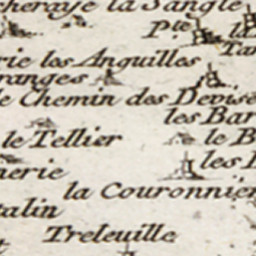 cheraye la Sangle
Pte. la
Tar
rie les Anguilles
ranges
le Chemin des Devise
les Bar
le Tellier le B
nerie les
la Couronnier
talin
Treleuille